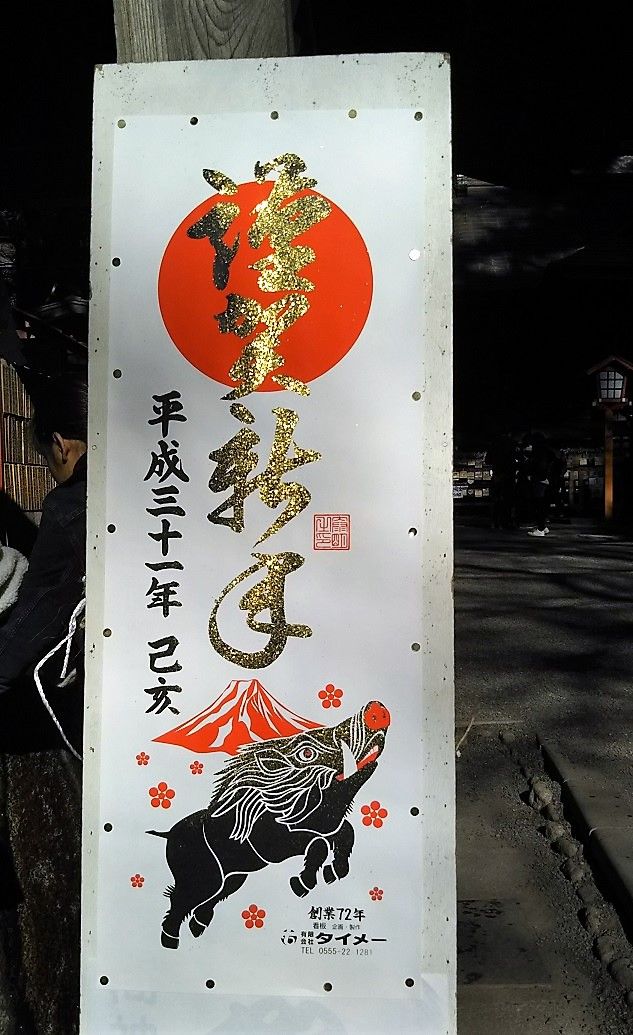 謹賀新年
平成三十一年 己亥
創業72年
看板 企画・製作
有限会社 タイメー
TEL 0555-22 1281